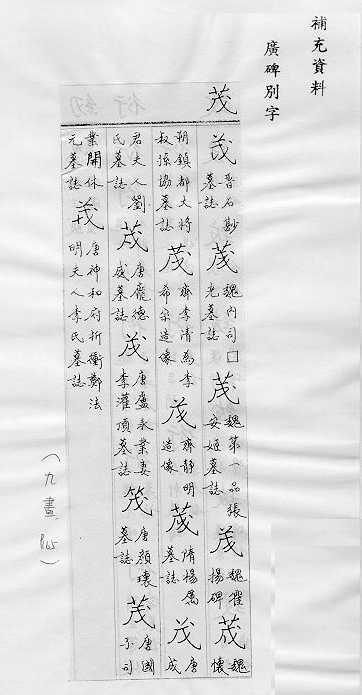 補充資料
廣碑別字
茂
茂晉石尠墓誌茂魏內司□光墓誌茂魏第一品張安姬墓誌茂魏翟楊碑茂魏懷
朔鎮都大將叔孫協墓誌茂齊李清為李希宗造像茂齊靜明造像茂隋楊厲墓誌茂唐成
君夫人劉氏墓誌茂唐龐德威墓誌茂唐盧永業妻李灌頂墓誌茂唐顏瓌墓誌茂唐國子司
業開休元墓誌茂唐神和府折衝鄭法明夫人李氏墓誌
(九畫